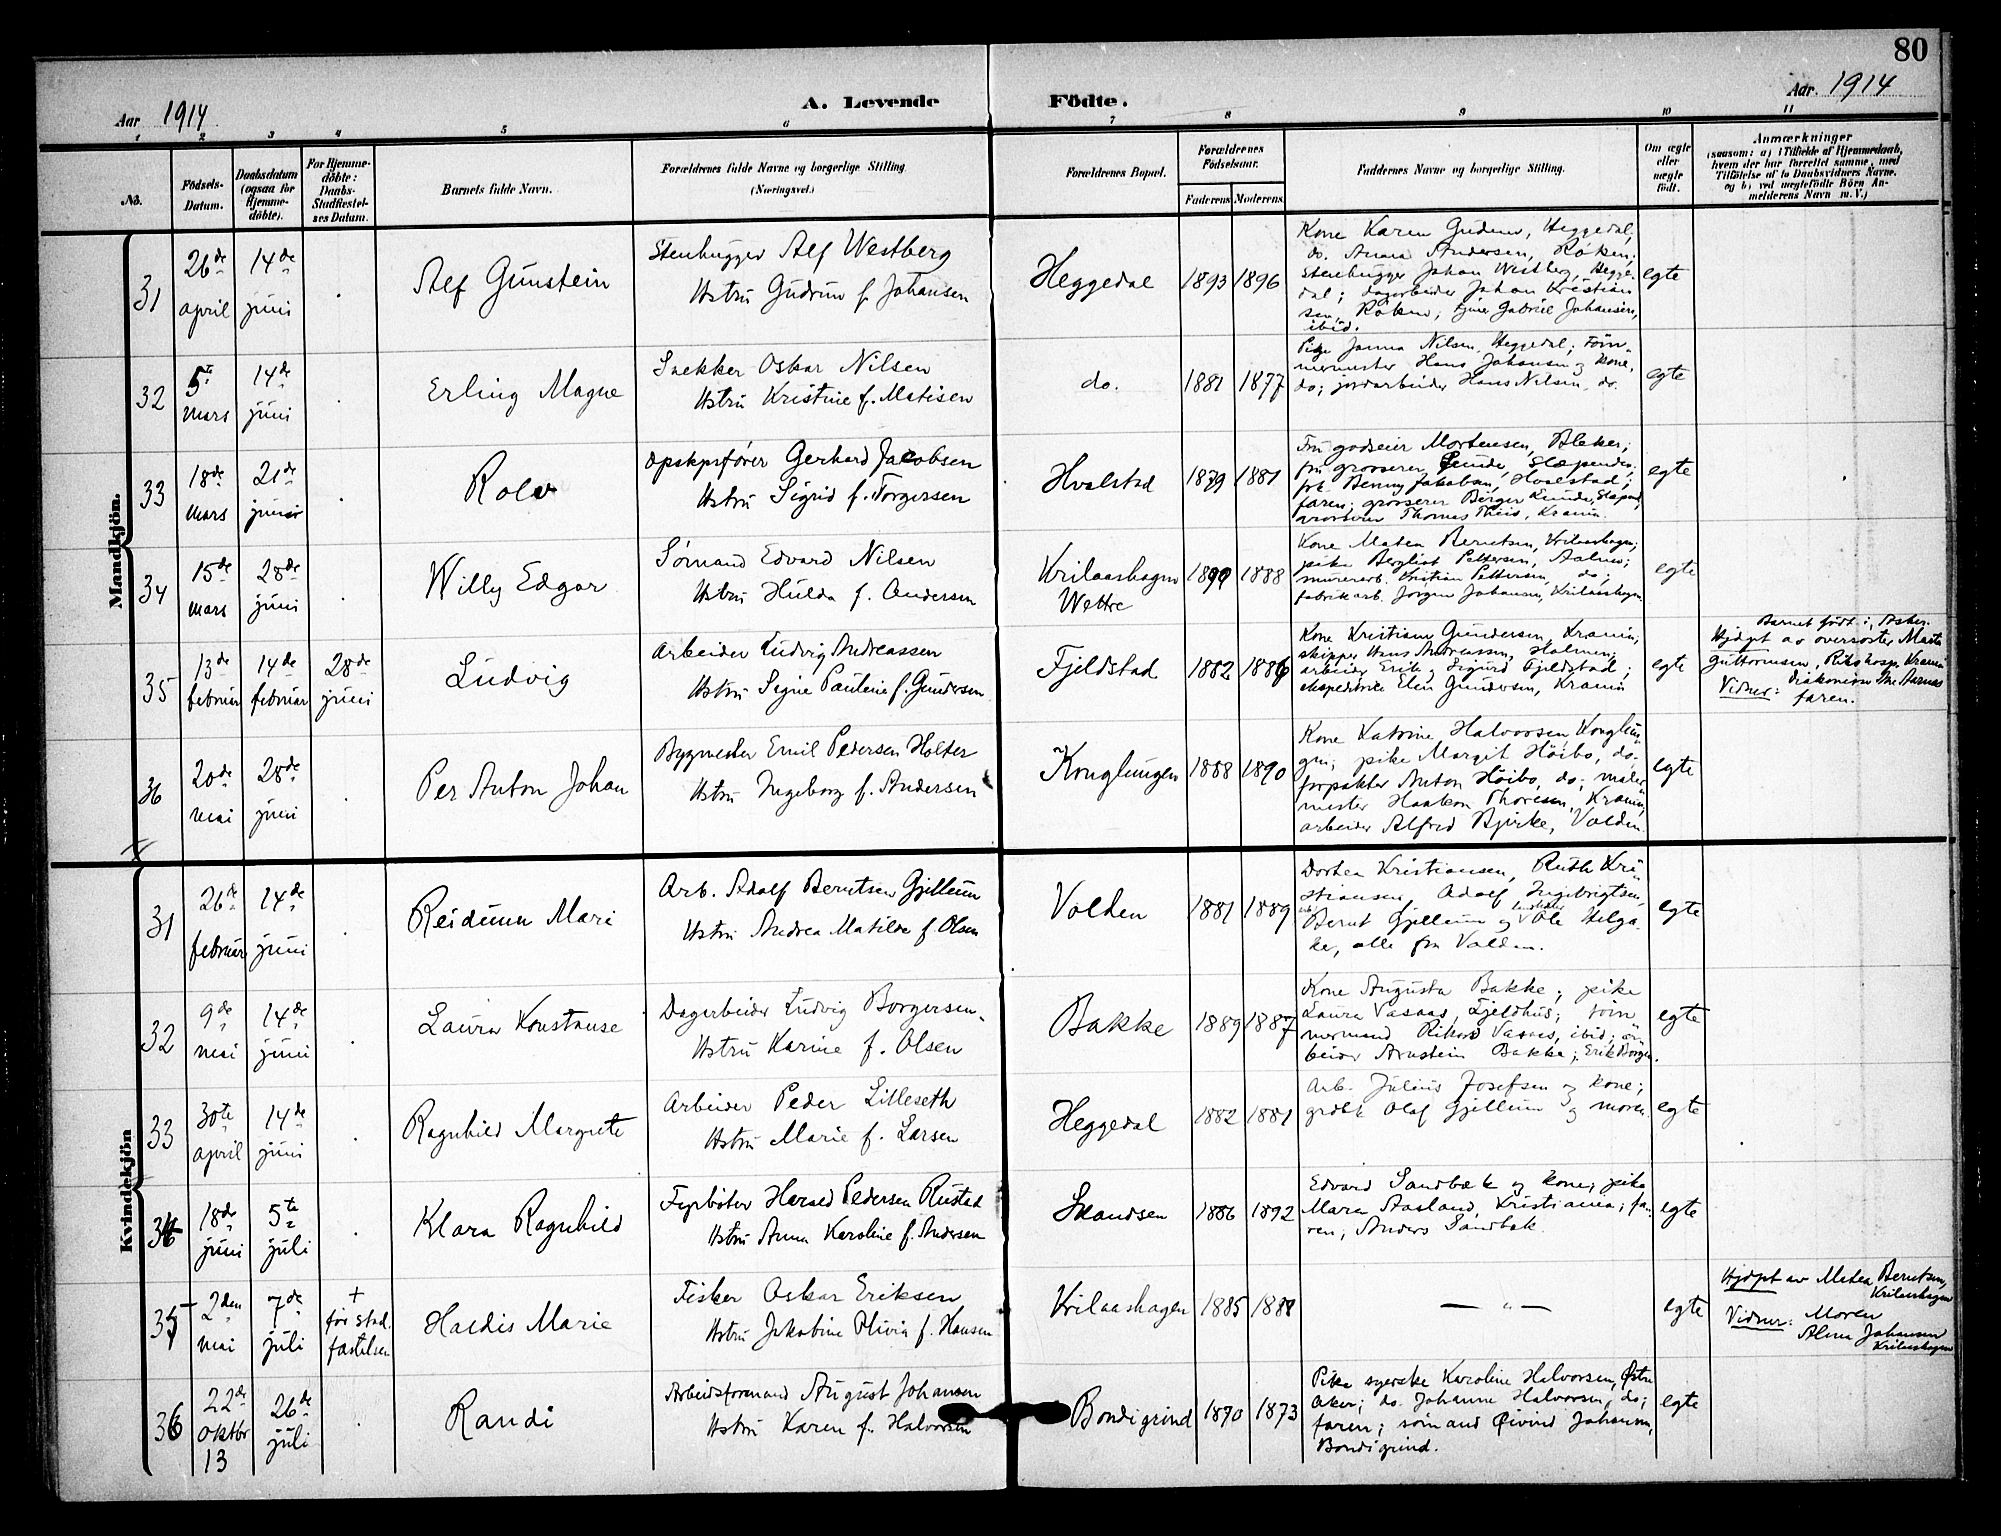 80
Aar 1914
A. Levende Födte.
Aar 1914
1 2 3 4 5 6 7 8 9 10 11
No.
Födsels-
Datum.
Daabsdatum
(ogsaa for
Hjemme-
döbte).
For Hjemme-
döbte:
Daabs-
Stadfæstel-
ses Datum.
Barnets fulde Navn.
Forældrenes fulde Navne og borgerlige Stilling
(Næringsvei.)
Forældrenes Bopæl.
Forældrenes
Födselsaar.
Faderens Moderens
Faddernes Navne og borgerlige Stilling.
Om ægte
eller
uægte
födt.
Anmærkninger
(saasom: a) i Tilfælde af Hjemmedaab,
hvem der har forrettet samme, med
Tilföielse af to Daabsvidners Navne.
og b) ved uægtefödte Börn An-
melderens Navn m. V.)
Mandkjön.
31
26de
april
14de
juni
Alf Gunstein
Stenhugger Alf Westberg
Hstru Gudrun f. Johansen
Heggedal
1893 1896
Kone Karen Gudem, Heggedal;
do. Anna Andersen, Röken;
Stenhugger Johan Westberg, Hegge-
dal; dagarbeider Johan Kristian
sen, Röken; Gabriel Johansen,
ibid.
egte
32
5te
mars
14de
juni
Erling Magne
Snekker Oskar Nilsen
Hstru Kristine f. Matisen
do.
1881 1877
Pige Janna Nilsen, Heggedal; Töm-
mermester Hans Johansen og kone,
do; jordarbeider Hans Nilsen, do.
egte
33
18de
mars
21de
juni
Rolv
Opskpsfører Gerhard Jacobsen
Hstru Sigrid f. Torgersen
Hvalstad
1879 1881
Fru godseier Mortensen, Bleker;
fru grosserer Gunde, Slæpende;
frk. Benny Jakobsen, Hvalstad;
faren; grosserer Birger Slæpend
grosserer Thomas Theis, Krania.
egte
34
15de
mars
28de
juni
Willy Edgar
Sømand Edvard Nilsen
Hstru Hulda f. Andersen
Krilaashagen
Wettre
1888
Kone Matea Berntsen, Krilaashagen;
pike Bergliot Pettersen,
murerarb. Kristian Pettersen, do;
fabrikarb. Jörgen Johansen, Krilaashagen.
egte
35
13de
februar
14de
februar
28de
juni
Ludvig
Arbeider Ludvig Andreassen
Hstru Signe Pauline f. Gundersen
Fjeldstad
1882 1886
Kone Kristiane Gundersen, Krania;
skipper Hans Andreassen, Holmen;
arbeider Erik og Sigurd Fjeldstad;
ekspeditrice Elen Gundersen, Krania
egte
Barnet födt i Asker.
Hjdpt av oversøster Marta
Guttormsen, Rikshosp. Krania
Vidner: diakonisse Aarnas
faren.
36
20de
mai
28de
juni
Per Anton Johan
Bygmester Emil Pedersen Holter
Hstru Ingeborg f. Andersen
Konglungen
1888 1890
Kone Katrine Halvorsen Konglun-
gen; pike Margit Höibo, do;
forpakter Anton Höibo, do; maler-
mester Haakon Thoresen, Krania;
arbeider Alfred Bjerke, Volden.
egte
Kvindekjön
31
26de
februar
14de
juni
Reidunn Mari
Arb. Adolf Berntsen Gjellum
Hstru Andrea Matilde f. Olsen
Volden
1881 1889
Dortea Kristiansen, Ruth Kri-
stiansen, Adolf Ingebrigtsen,
Bernt Gjellum og Ole Helga-
ker, alle fra Volden.
egte
32
9de
mai
14de
juni
Laura Konstanse
Dagarbeider Ludvig Borgersen.
Hstru Karine f. Olsen
Bakke
1889 1887
Kone Augusta Bakke; pike
Laura Vasaas, Fjeldhus; töm
mermand Rikard Vasaas, ibid; ar-
beider Arnstein Bakke; Erik Borgen.
egte
33
30te
april
14de
juni
Ragnhild Margrete
Arbeider Peder Lilleseth
Hstru Marie f. Larsen
Heggedal
1882 1881
Arb. Julius Josefsen og kone;
grdbr. Olaf Gjellum og moren.
egte
34
18de
juni
5te
juli
Klara Ragnhild
Fyrbøter Harald Pedersen Rustad
Hstru Anna Karoline f. Andersen
Skandsen
1886 1892
Edvard Sandbæk og kone; pike
Mara Aasland, Kristiania; fa-
ren; Anders Sandbæk.
egte
35
2den
mai
7de
juli
+
før stad
fæstelsen
Haldis Marie
Fisker Oskar Eriksen
Hstru Jakobine Olivia f. Hansen
Krilaashagen
1885 1888
— " —
egte
Hjdpt av Matea Berntsen,
Krilaashagen
Vidner: Moren
Alma Johansen
Krilaashagen
36
22de
oktbr
13
26de
juli
Randi
Arbeidsformand August Johansen
Hstru Karen f. Halvorsen
Bondigrind
1870 1873
Pike syerske Karoline Halvorsen, Østre
Aker; do. Johanne Halvorsen, do;
faren; sömand Öivind Johansen,
Bondigrind.
egte